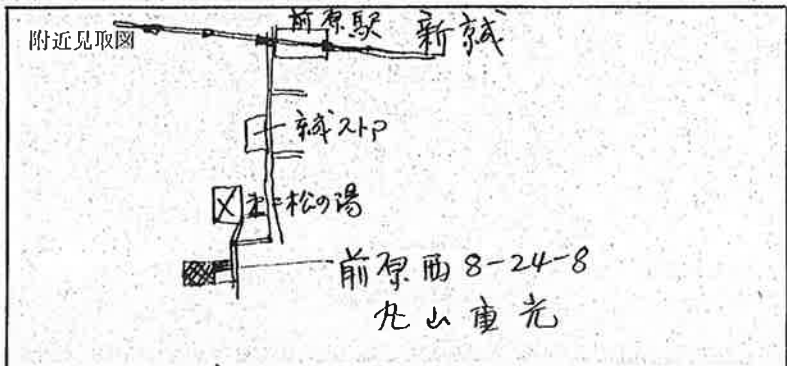 附近見取図
前原駅
新京成
京成ストア
松の湯
前原西 8-24-8
丸山重光